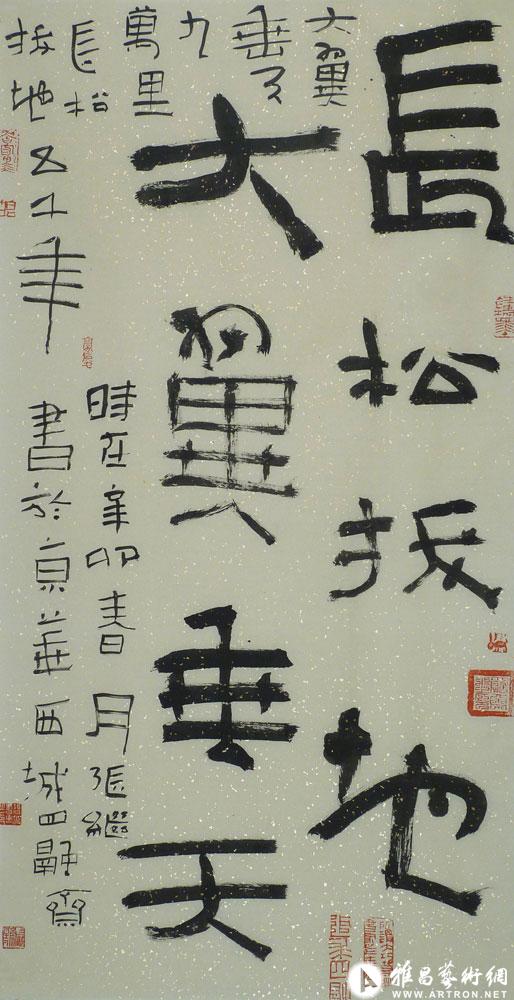 長松拔地
大翼垂天
大翼
垂天
九
萬里
長松
拔地五千年
時在辛卯春月張繼
書於京華西城四融齋
雅昌藝術網
WWW.ARTRON.NET